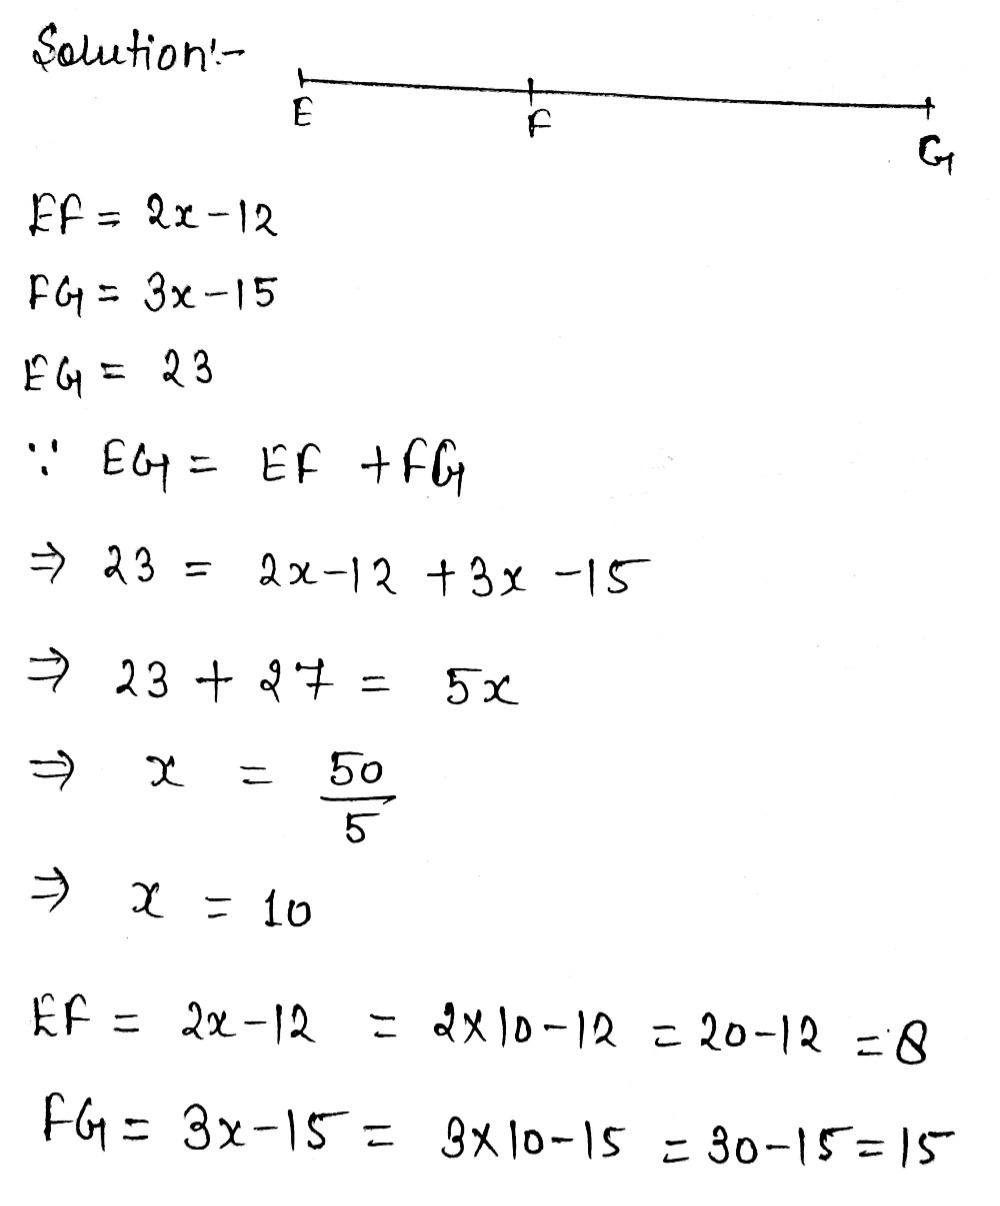 Solution:-
E F G
EF = 2x-12
FG = 3x-15
EG = 23
∵ EG = EF + FG
⇒ 23 = 2x-12 + 3x - 15
⇒ 23 + 27 = 5x
⇒ x = 50/5
⇒ x = 10
EF = 2x-12 = 2×10-12 = 20-12 = 8
FG = 3x-15 = 3×10-15 = 30-15 = 15